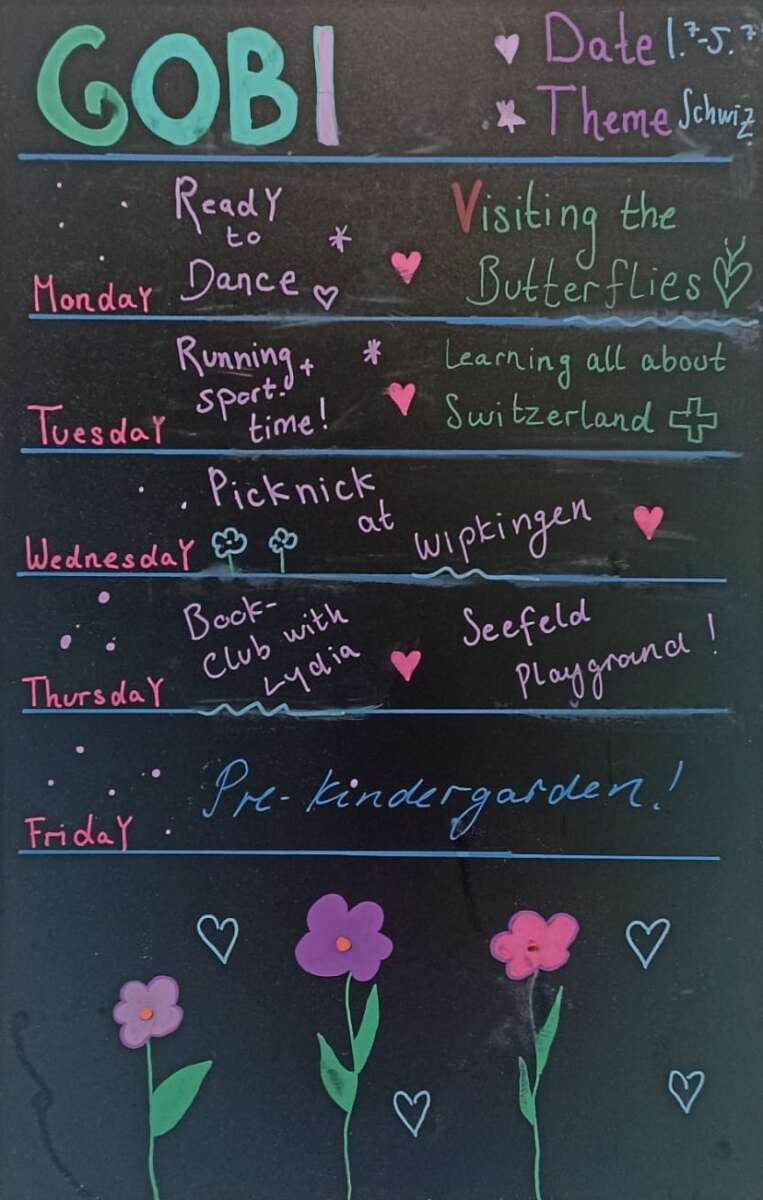 GOBI
Date 1.7-5.7
Theme Schwiz
Monday
Ready
to
Dance
Visiting the
Butterflies
Tuesday
Running +
sport-
time!
Learning all about
Switzerland
Wednesday
Picknick
at
Wipkingen
Thursday
Book-
Club with
Lydia
Seefeld
Playground!
Friday
Pre-kindergarden!